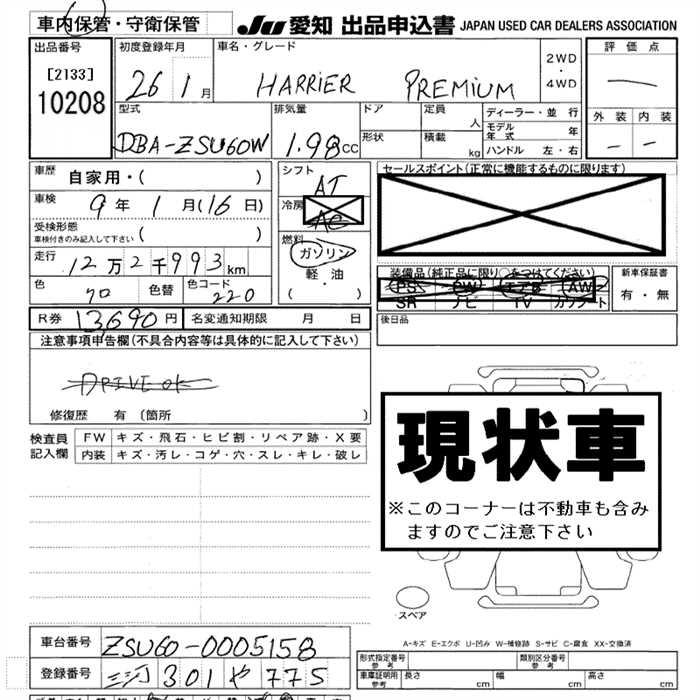 車内保管・守衛保管 JU 愛知 出品申込書 JAPAN USED CAR DEALERS ASSOCIATION
出品番号 初度登録年月 車名・グレード 2WD ・ 4WD 評価点
[2133] 10208 26 1月 HARRIER PREMIUM
型式 排気量 ドア 定員 人 ディーラー・並行 外装 内装
DBA-ZSU60W 1.98cc 形状 積載 kg モデル年式 年 ハンドル 左・右
車歴 自家用・( ) シフト AT セールスポイント(正常に機能するものに限ります)
車検 9年 1月(16日) 冷房 AC
受検形態 車検付きのみ記入して下さい ( ) 燃料 ガソリン
走行 12万2千993km 軽・油 装備品(純正品に限り○をつけてください) 新車保証書
色 クロ 色替 色コード 220 ( ・ ) PS PW エアB AW 有・無
SR ナビ TV カワシート
R券 13,690円 名変通知期限 月 日 後日品
注意事項申告欄(不具合内容等は具体的に記入して下さい)
DRIVE OK
修復歴 有 〔箇所 〕
検査員記入欄 FW キズ・飛石・ヒビ割・リペア跡・X要
内装 キズ・汚レ・コゲ・穴・スレ・キレ・破レ
現状車
※このコーナーは不動車も含み
ますのでご注意下さい
スペア
A-キズ E-エクボ U-凹み W-補修跡 S-サビ C-腐食 XX-交換済
車台番号 ZSU60-0005158 形式指定番号 参考 類別区分番号 参考
登録番号 三河 301 や 775 車庫証明用 参考 長さ cm 幅 cm 高さ cm